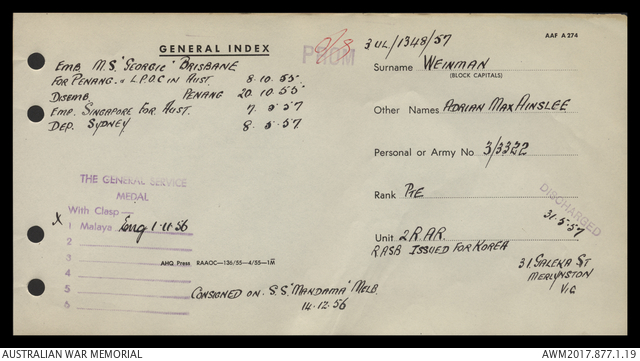 GENERAL INDEX
AAF A274
3 UL/1348/57
EMB. M.S. "GEORGIC" BRISBANE
FOR PENANG. & L.P.O.C IN AUST. 8.10.55.
DISEMB. PENANG 20.10.55
EMP. SINGAPORE FOR AUST. 7.5.57
DEP. SYDNEY 8.5.57
Surname WEINMAN
(BLOCK CAPITALS)
Other Names ADRIAN MAX AINSLEE
Personal or Army No. 3/3322
Rank PTE
DISCHARGED
31.5.57
Unit 2 R.A.R.
RASB ISSUED FOR KOREA
31 GALEKA ST
MERLYNSTON
VIC
THE GENERAL SERVICE
MEDAL
With Clasp
x 1 Malaya Eng 1.11.56
2
3
4
5
6
AHQ Press RAAOC—136/55—4/55—1M
CONSIGNED ON S.S. "MANDAMA" MELB.
14.12.56
AUSTRALIAN WAR MEMORIAL
AWM2017.877.1.19